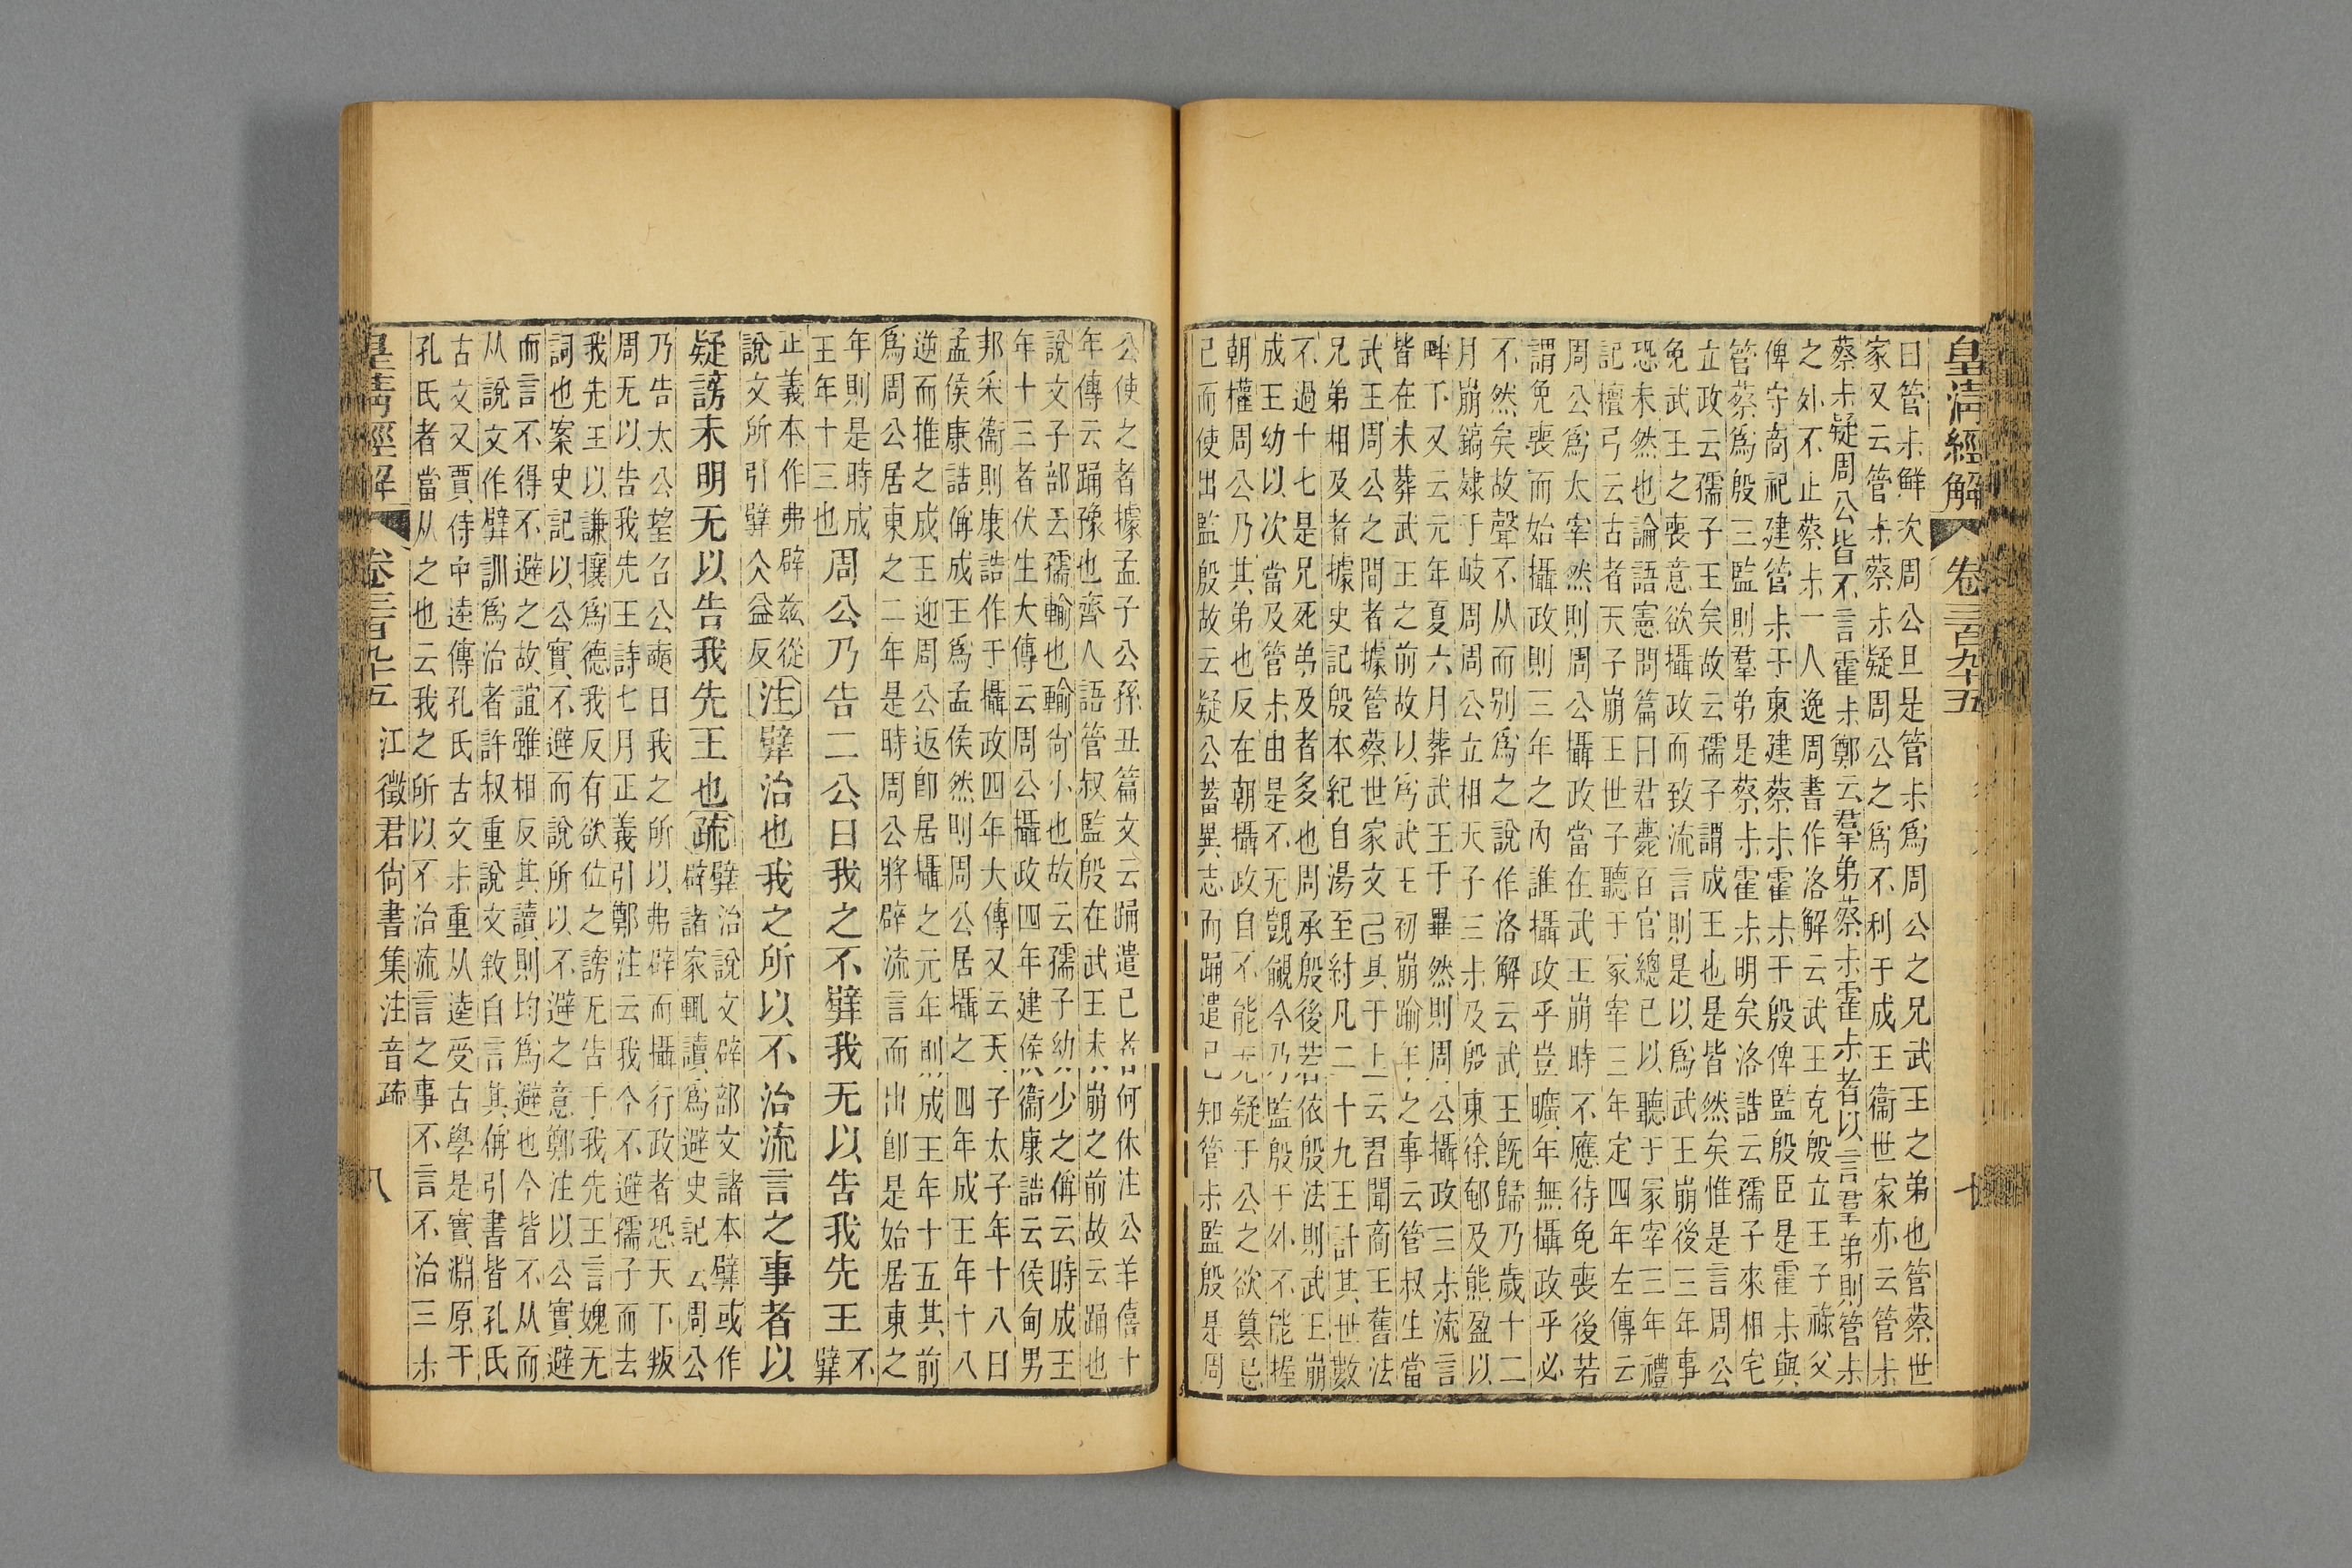 皇淸經解 卷三百九十五 十
曰管尗鮮次周公旦是管尗爲周公之兄武王之弟也管蔡世
家又云管尗蔡尗疑周公之爲不利于成王衞世家亦云管尗
蔡尗疑周公皆不言霍尗鄭云羣弟蔡尗霍尗者以言羣弟則管尗
之外不止蔡尗一人逸周書作洛解云武王克殷立王子祿父
俾守商祀建管尗于東建蔡尗霍尗于殷俾監殷臣是霍尗與
管蔡爲殷三監則羣弟是蔡尗霍尗明矣洛誥云孺子來相宅
立政云孺子王矣故云孺子謂成王也是皆然矣惟是言周公
免武王之喪意欲攝政而致流言則是以爲武王崩後三年事
恐未然也論語憲問篇曰君薨百官總己以聽于冢宰三年禮
記檀弓云古者天子崩王世子聽于冢宰三年定四年左傳云
周公爲太宰然則周公攝政當在武王崩時不應待免喪後若
謂免喪而始攝政則三年之內誰攝政乎豈曠年無攝政乎必
不然矣故聲不从而別爲之說作洛解云武王旣歸乃歲十二
月崩鎬肂于岐周周公立相天子三尗及殷東徐郵及熊盈以
畔下又云元年夏六月葬武王于畢然則周公攝政三尗流言
皆在未葬武王之前故以爲武王初崩踰年之事云管叔生當
武王周公之間者據管蔡世家文己具于上云習聞商王舊法
兄弟相及者據史記殷本紀自湯至紂凡二十九王計其世數
不過十七是兄死弟及者多也周承殷後若依殷法則武王崩
成王幼以次當及管尗由是不无覬覦今乃監殷于外不能握
朝權周公乃其弟也反在朝攝政自不能无疑于公之欲篡己
己而使出監殷故云疑公蓄異志而踊遣己知管尗監殷是周
公使之者據孟子公孫丑篇文云踊遣己者何休注公羊僖十
年傳云踊豫也齊人語管叔監殷在武王未崩之前故云踊也
說文子部云孺輸也輸尙小也故云孺子幼少之偁云時成王
年十三者伏生大傳云周公攝政四年建侯衞康誥云侯甸男
邦采衞則康誥作于攝政四年大傳又云天子太子年十八曰
孟侯康誥偁成王爲孟侯然則周公居攝之四年成王年十八
逆而推之成王迎周公返卽居攝之元年則成王年十五其前
爲周公居東之二年是時周公將辟流言而出卽是始居東之
年則是時成
王年十三也
周公乃告二公曰我之不䢃我无以告我先王
不
䢃
正義本作弗辟兹從
說文所引䢃仌益反
注䢃治也我之所以不治流言之事者以
疑謗未明无以告我先王也疏
䢃治說文辟部文諸本䢃或作
辟諸家輒讀爲避史記云周公
乃告太公望召公奭曰我之所以弗辟而攝行政者恐天下叛
周无以告我先王詩七月正義引鄭注云我今不避孺子而去
我先王以謙攘爲德我反有欲位之謗无告于我先王言媿无
詞也案史記以公實不避而說所以不避之意鄭注以公實避
而言不得不避之故誼雖相反其讀則均爲避也今皆不从而
从說文作䢃訓爲治者許叔重說文敘自言其偁引書皆孔氏
古文又賈侍中逵傳孔氏古文尗重从逵受古學是實淵原于
孔氏者當从之也云我之所以不治流言之事不言不治三尗
皇淸經解 卷三百九十五 江徵君尙書集注音疏 八